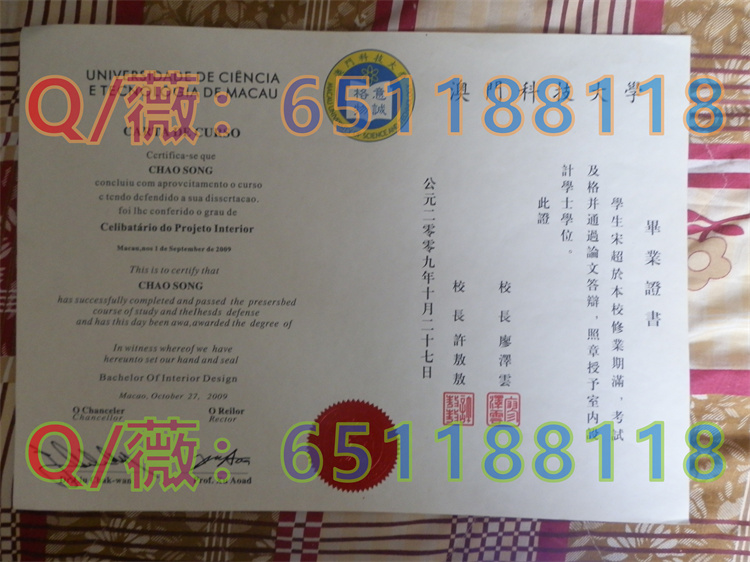 UNIVERSIDADE DE CIÊNCIA
E TECNOLOGIA DE MACAU
澳門科技大學
格意
誠
Q/薇：651188118
CARTA DE CURSO
Certifica-se que
CHAO SONG
concluiu com aprovcitamento o curso
e tcndo dcfendido a sua disscrtacao.
foi lhc conferido o grau de
Celibatário do Projeto Interior
Macau,nos 1 de Septembre de 2009
This is to certify that
CHAO SONG
has successfully completed and passed the presersbed
course of study and thelhesds defense
and has this day been awa,awarded the degree of
In witness whereof we have
hereunto set our hand and seal
Bachelor Of Interior Design
Macao, October 27, 2009
O Chanceler
Chancellor
O Reilor
Rector
Aoad
畢業證書
學生宋超於本校修業期滿，考試
及格并通過論文答辯，照章授予室内設
計學士學位。
此證
校長廖澤雲
校長許敖敖
公元二零零九年十月二十七日
Q/薇：651188118